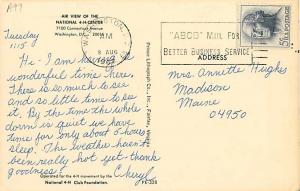 A97
AIR VIEW OF THE
NATIONAL 4-H CENTER
7100 Connecticut Avenue
Washington, D.C.
Tuesday
1:15
Hi - I am having a
wonderful time here.
There is so much to see
and so little time to see
it. By the time the whole
dorm is quiet we have
time for only about 5 hours
sleep. The weather hasn't
been really hot yet - thank
goodness
Cheryl
Operated for the 4-H movement by the
National 4-H Club Foundation.
WASHINGTON,
AM
8 AUG
"ABCD" MAIL FOR
BETTER BUSINESS SERVICE
5¢ U.S. POSTAGE
ADDRESS
Mrs Annette Hughes
Madison
Maine
04950